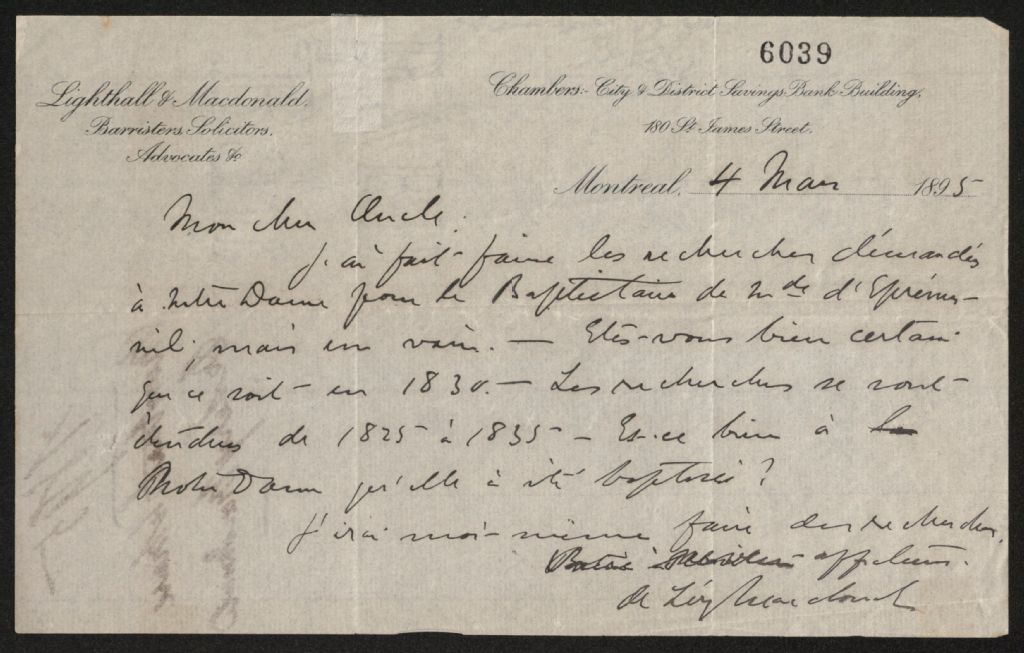 6039
Lighthall & Macdonald.
Barristers, Solicitors,
Advocates &c
Chambers:- City & District Savings Bank Building,
180 St. James Street.
Montreal, 4 Mars 1895
Mon cher Oncle.
J'ai fait faire les recherches demandés
à Notre Dame pour le Baptistaire de Mde d'Eprémes-
nil, mais en vain. — Etes-vous bien certain
que ce soit en 1830. — Les recherches se sont
étendues de 1825 à 1835 — Est-ce bien à
Notre Dame qu'elle à été baptisée?
J'irai moi-même faire des recherches.
affectueux.
de Léry Macdonald